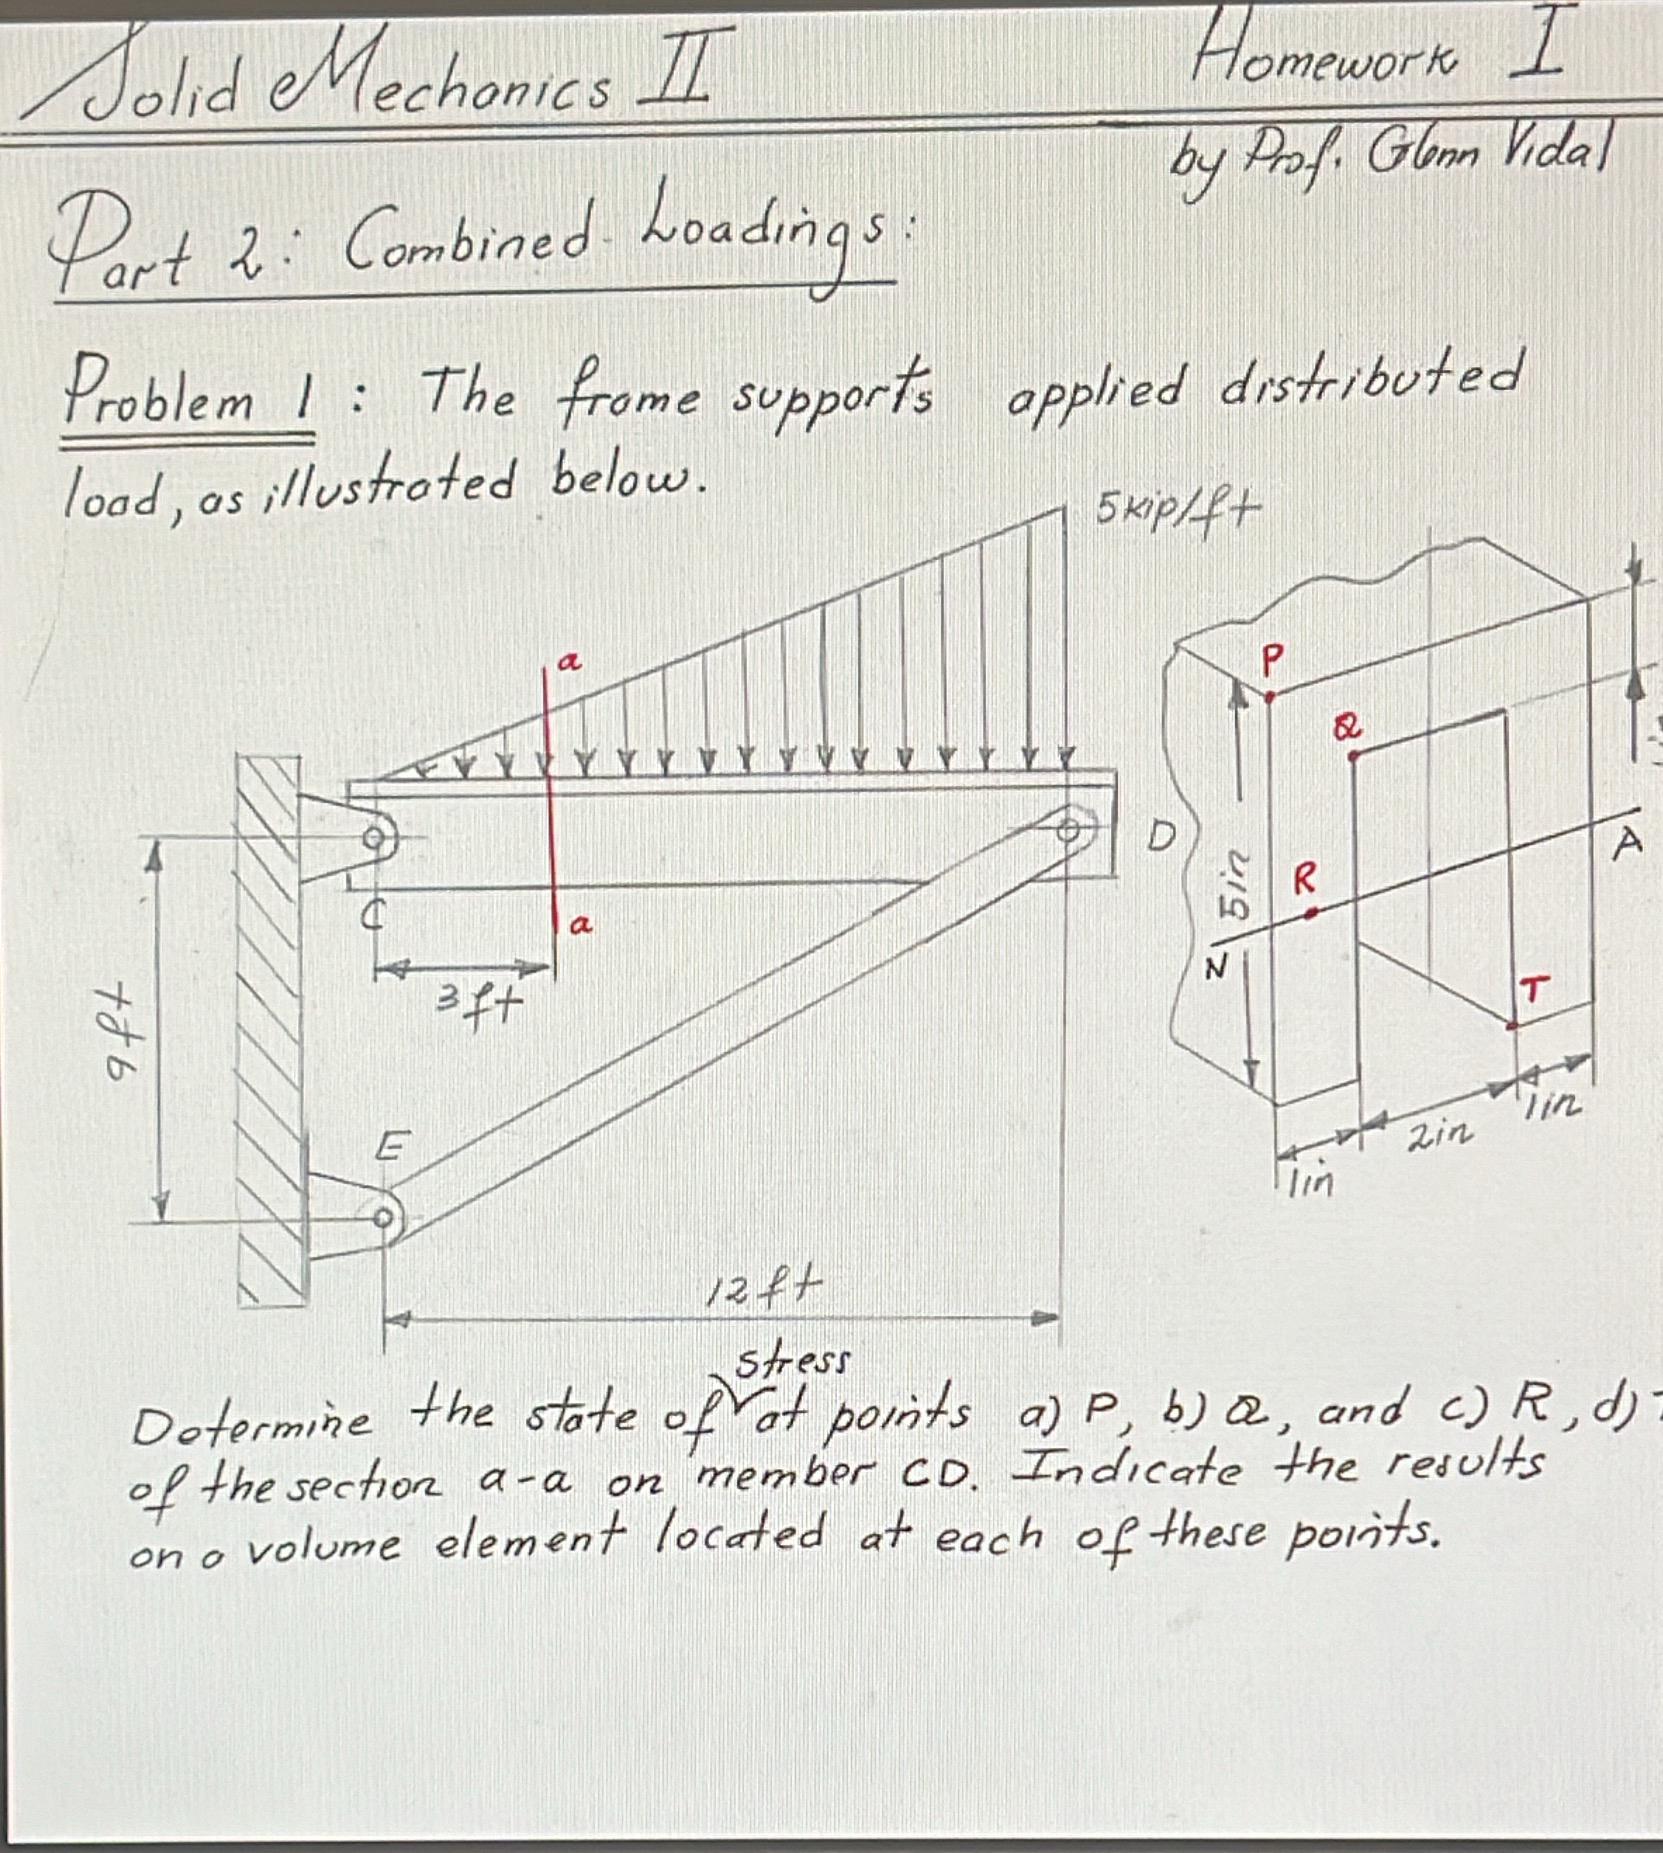 Solid Mechanics II
Homework I
by Prof. Glenn Vidal
Part 2: Combined Loadings:
Problem 1: The frame supports applied distributed
load, as illustrated below.
5kip/ft
a
P
Q
D
A
5in
R
C
a
N
3ft
T
9ft
1in
2in
E
1in
12ft
stress
Determine the state of at points a) P, b) Q, and c) R, d)
of the section a-a on member CD. Indicate the results
on a volume element located at each of these points.